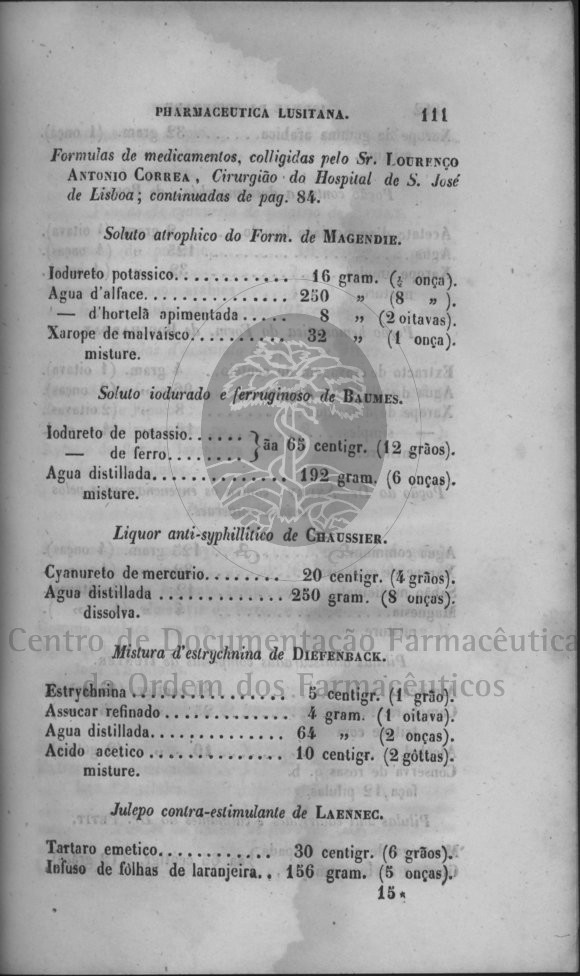 PHARMACEUTICA LUSITANA. 111
Formulas de medicamentos, colligidas pelo Sr. LOURENÇO
ANTONIO CORREA, Cirurgião do Hospital de S. José
de Lisboa; continuadas de pag. 84.
Soluto atrophico do Form. de MAGENDIE.
Iodureto potassico............ 16 gram. (½ onça).
Agua d'alface............... 250 „ (8 „ ).
— d'hortelã apimentada..... 8 „ (2 oitavas).
Xarope de malvaisco.......... 32 „ (1 onça).
misture.
Soluto iodurado e ferruginoso de BAUMES.
Iodureto de potassio......
— de ferro........ } ãa 65 centigr. (12 grãos).
Agua distillada.............. 192 gram. (6 onças).
misture.
Liquor anti-syphillitico de CHAUSSIER.
Cyanureto de mercurio........ 20 centigr. (4 grãos).
Agua distillada ............. 250 gram. (8 onças).
dissolva.
Centro de Documentação Farmacêutica
Mistura d'estrychnina de DIEFENBACK.
da Ordem dos Farmacêuticos
Estrychnina ................. 5 centigr. (1 grão).
Assucar refinado ............. 4 gram. (1 oitava).
Agua distillada.............. 64 „ (2 onças).
Acido acetico .............. 10 centigr. (2 gôttas).
misture.
Julepo contra-estimulante de LAENNEC.
Tartaro emetico............ 30 centigr. (6 grãos).
Infuso de fôlhas de laranjeira.. 156 gram. (5 onças).
15*